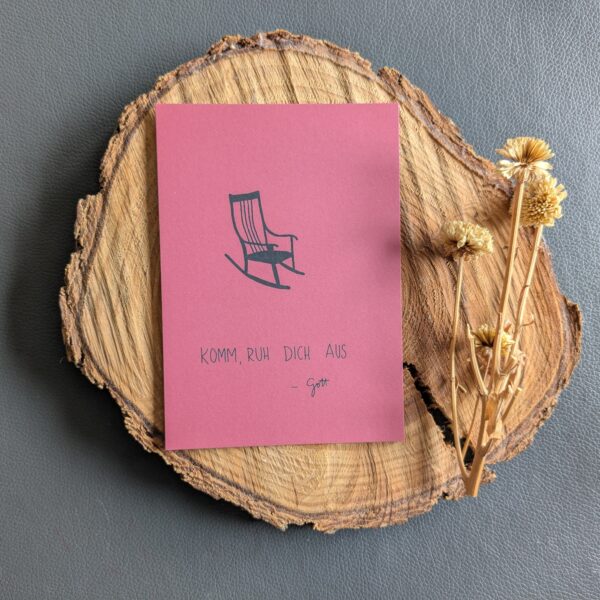 KOMM, RUH DICH AUS
– Gott